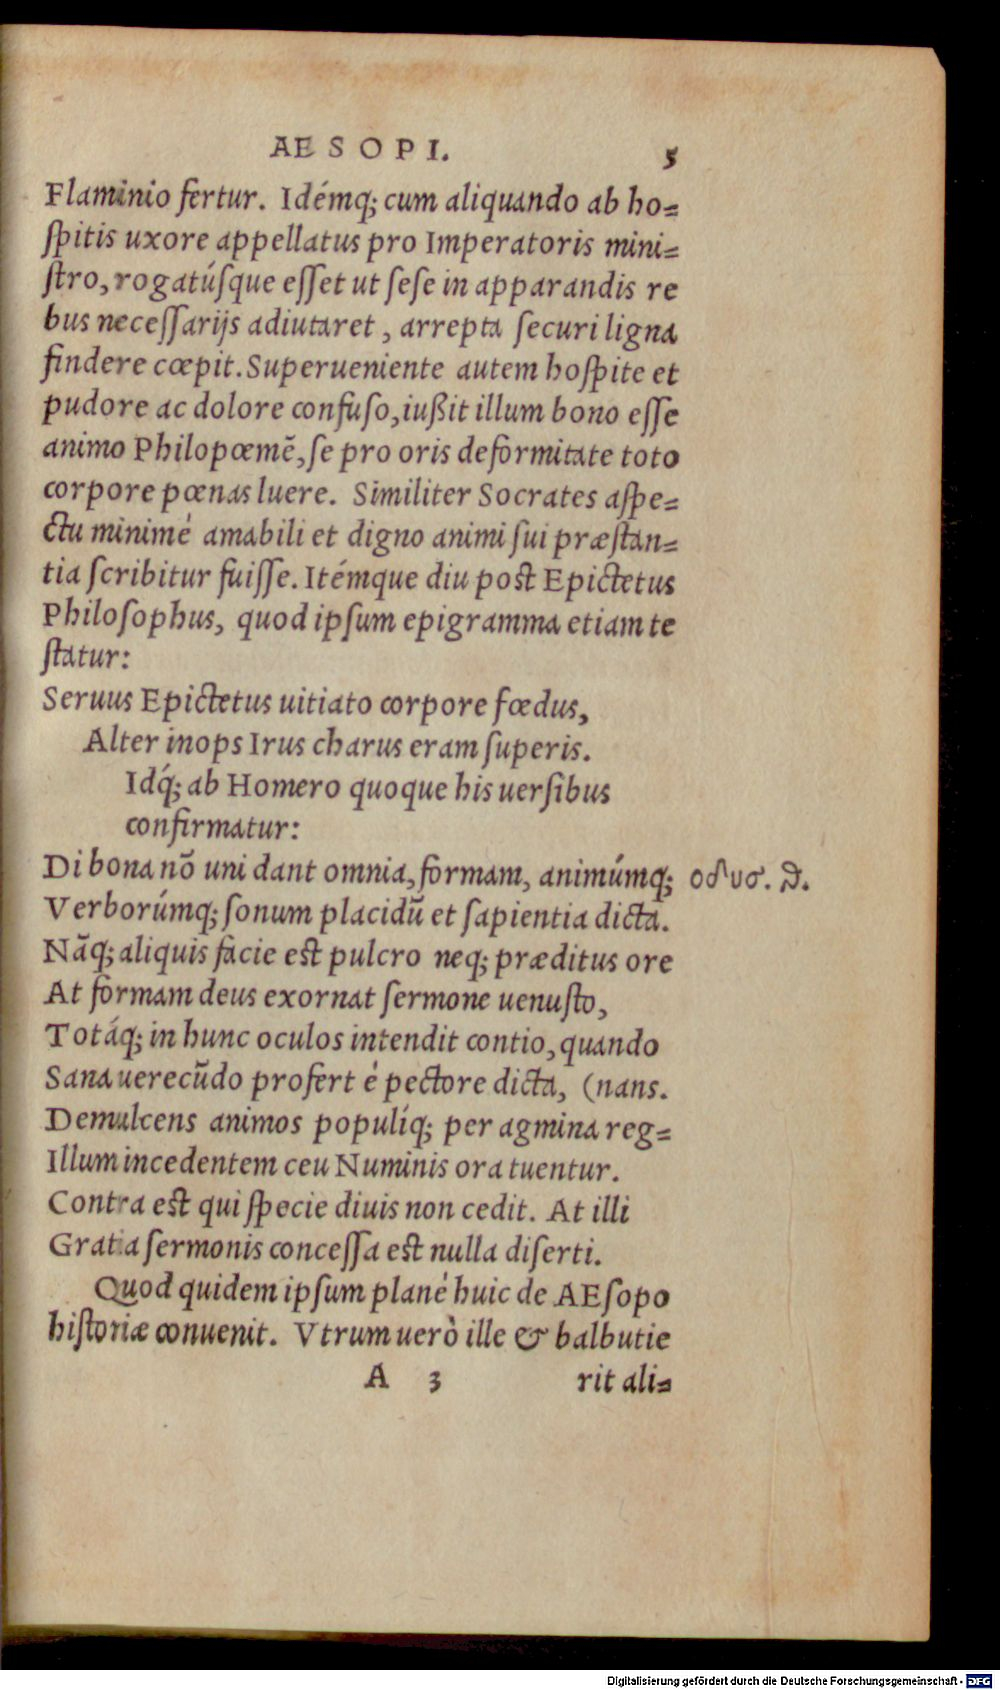 AESOPI. 5
Flaminio fertur. Idémq; cum aliquando ab ho=
ſpitis uxore appellatus pro Imperatoris mini=
ſtro, rogatúſque eſſet ut ſeſe in apparandis re
bus neceſſarijs adiutaret, arrepta ſecuri ligna
findere cœpit. Superueniente autem hoſpite et
pudore ac dolore confuſo, iußit illum bono eſſe
animo Philopœmẽ, ſe pro oris deformitate toto
corpore pœnas luere. Similiter Socrates aſpe=
ctu minimé amabili et digno animi ſui præſtan=
tia ſcribitur fuiſſe. Itémque diu poſt Epictetus
Philoſophus, quod ipſum epigramma etiam te
ſtatur:
Seruus Epictetus uitiato corpore fœdus,
Alter inops Irus charus eram ſuperis.
Idq́; ab Homero quoque his uerſibus
confirmatur:
Di bona nõ uni dant omnia, formam, animúmq; οδυσ. θ.
Verborúmq; ſonum placidũ et ſapientia dicta.
Nãq; aliquis facie eſt pulcro neq; præditus ore
At formam deus exornat ſermone uenuſto,
Totáq; in hunc oculos intendit contio, quando
Sana uerecũdo profert é pectore dicta, (nans.
Demulcens animos populíq; per agmina reg=
Illum incedentem ceu Numinis ora tuentur.
Contra eſt qui ſpecie diuis non cedit. At illi
Gratia ſermonis conceſſa eſt nulla diſerti.
Quod quidem ipſum plané huic de AEſopo
hiſtoriæ conuenit. Vtrum uerò ille & balbutie
A 3 rit ali=
Digitalisierung gefördert durch die Deutsche Forschungsgemeinschaft - DFG